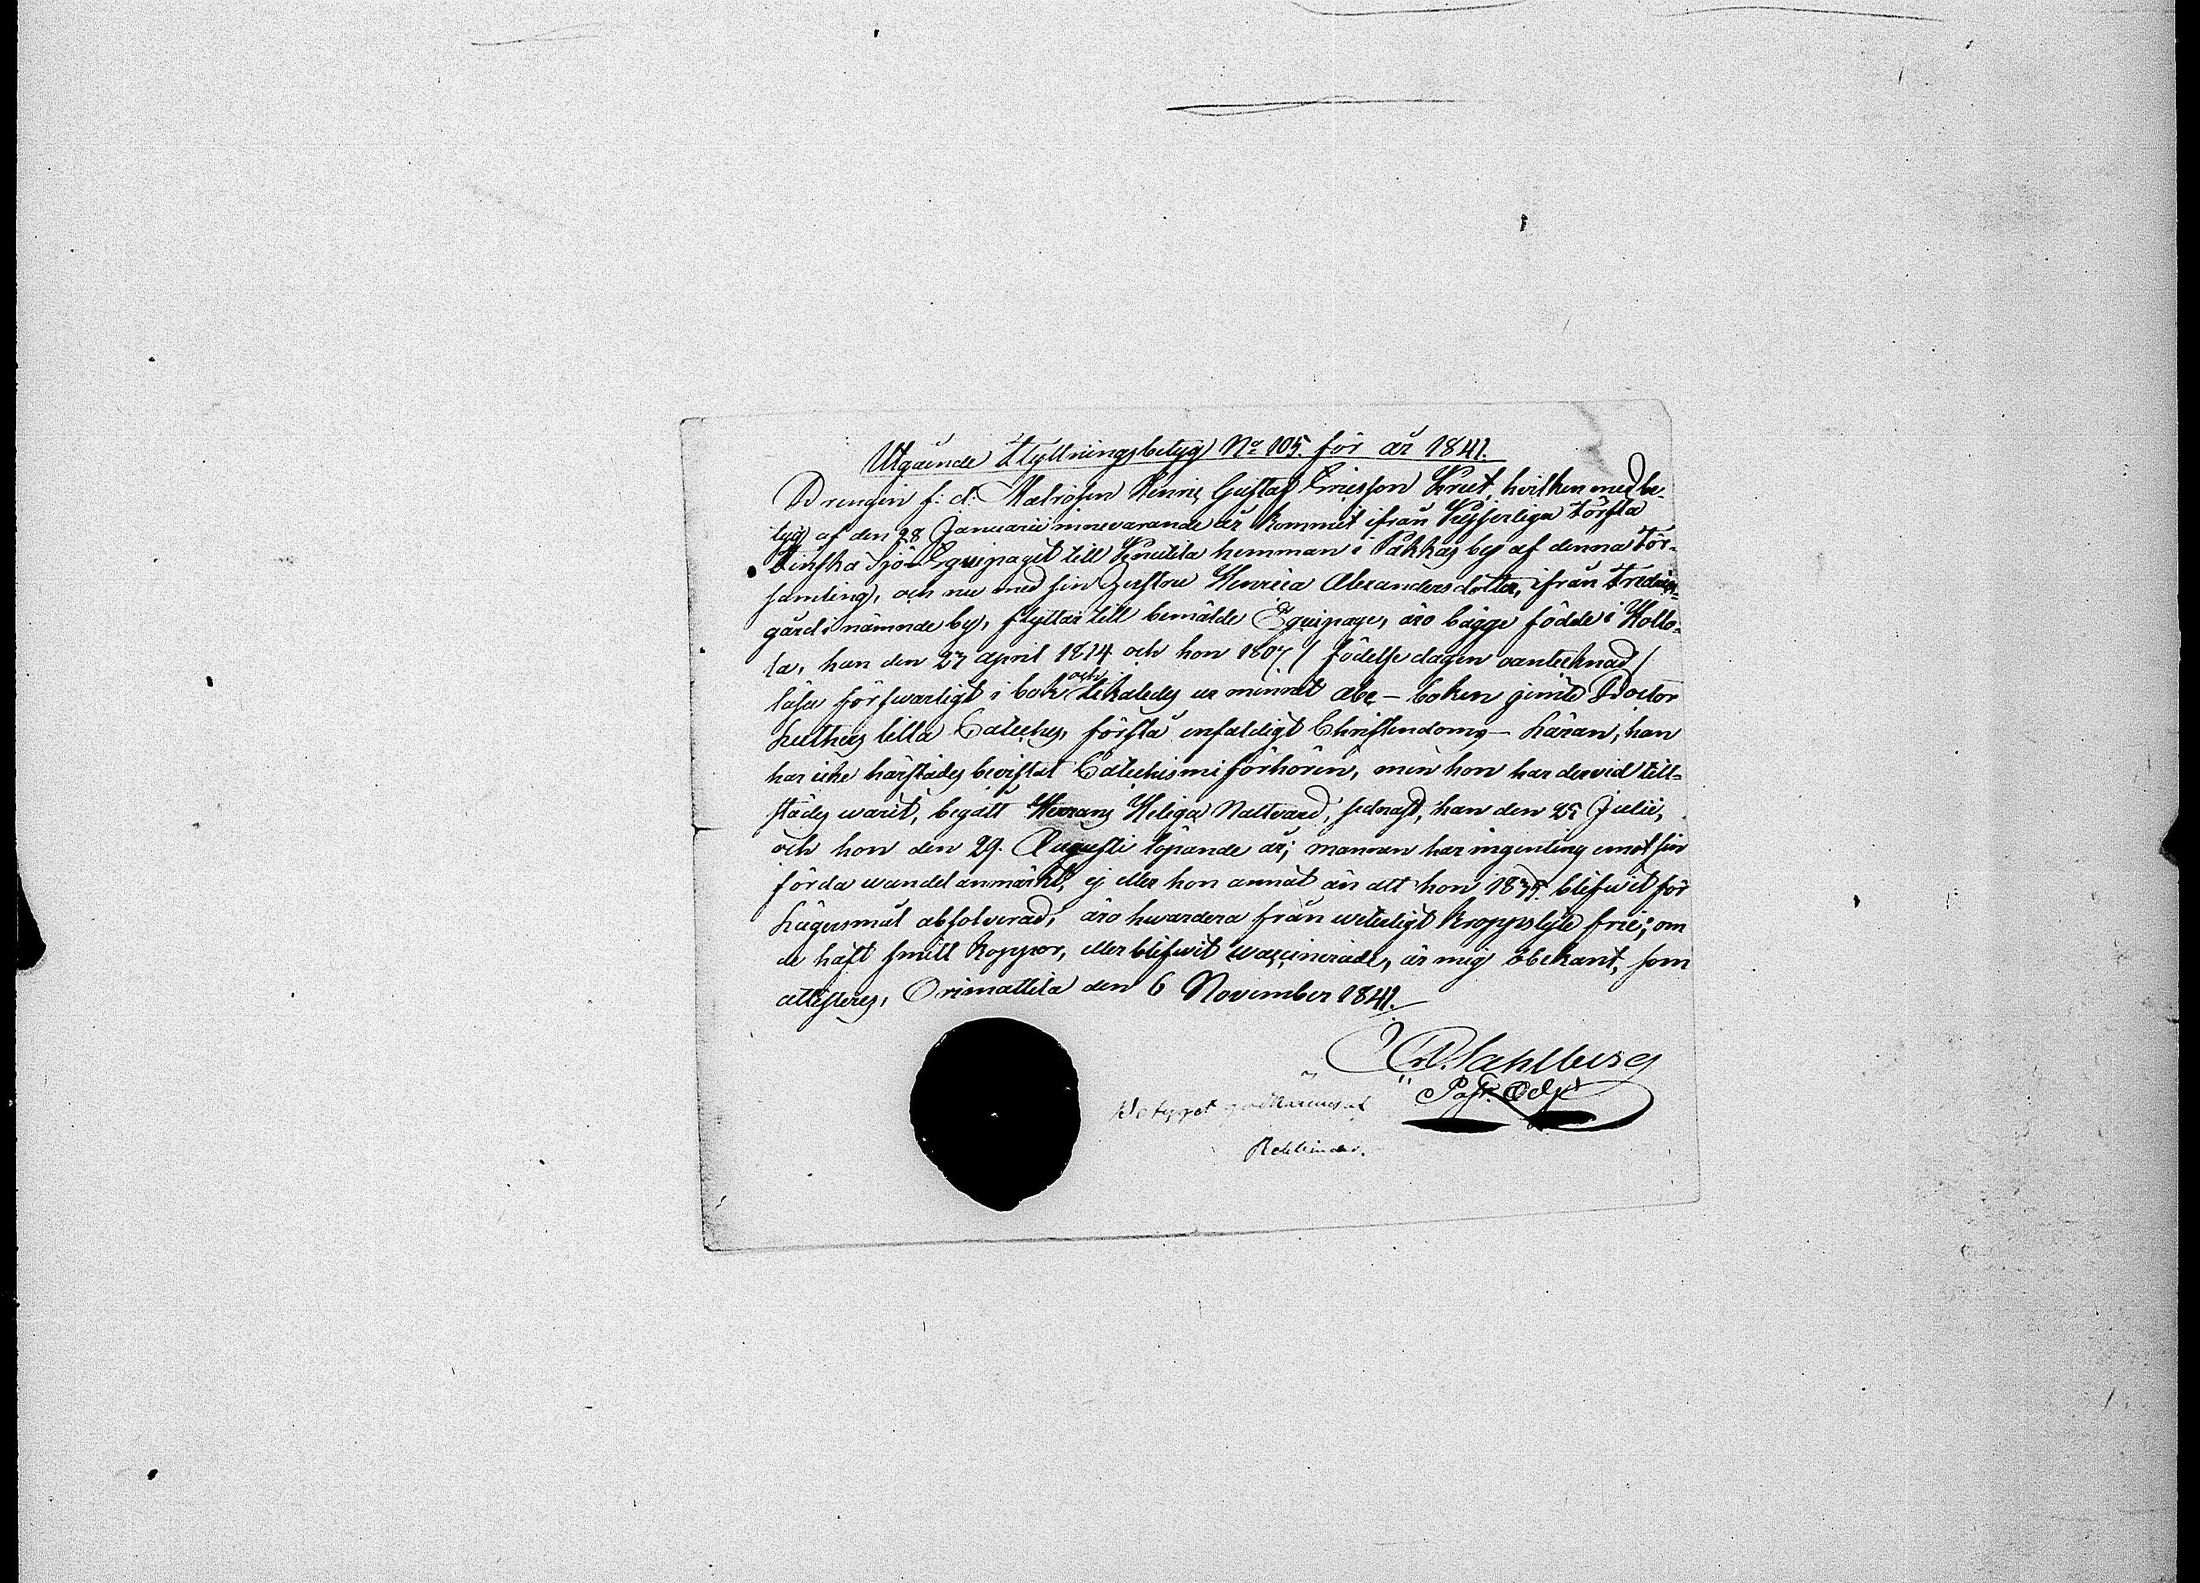 Utgående Flyttningsbetyg No 105. för år 1841.
Drengen f: d: Matrosen Henric Gustaf Ericsson Krut, hvilken med be-
tyg af den 28 Januarii innevarande år kommit ifrån Kejserliga Första
Finska Sjö-Equipaget till Knutila hemman i Pakkas by af denna För-
samling, och nu med sin Hustru Henrica Alexandersdotter, ifrån Fredriks-
gård i nämnde by, flyttar till bemälde Equipage, äro bägge födde i Hollo-
la, han den 27 April 1814 och hon 1807 / födelse dagen oantecknad /
läsa försvarligt i bok och likaledes ur minnet abc-boken jemte Doctor
Luthers lilla Cateches, förstå enfaldigt Christendoms-Läran, han
har icke härstädes bevistat Catechismi förhören, men hon har dervid till-
städes warit, begått Herrans Heliga Nattvard, sednast, han den 25 Julii,
och hon den 29. Augusti löpande år; mannen har ingenting emot sin
förda wandel anmärkt, ej eller hon annat än att hon 1835. blifwit för
Lägersmål absolverad, äro hwardera från weterligt kroppslyte frie; om
de haft små Koppor, eller blifwit waccinerade, är mig obekant, som
attesteres, Orimattila den 6 November 1841.
Sahlberg
Past: Adj:
Betyget godkännes af
Rehbinder.